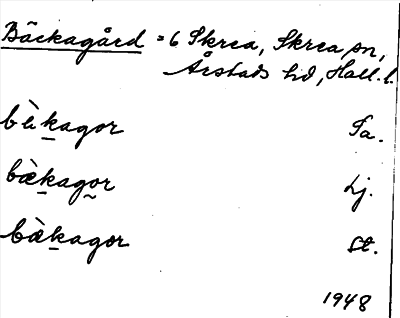 Bäckagård = 6 Skrea, Skrea sn,
Årstads hd, Hall. l.
bὲkagor Ta.
bæ̀kagor Lj.
bæ̀kagor St.
1948